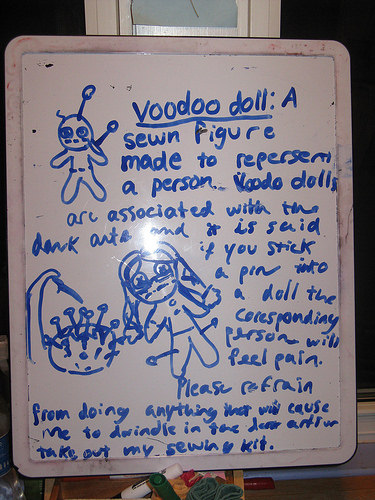 Voodoo doll: A
sewn figure
made to repersent
a person. Voodo dolls
are associated with the
dark arts and it is said
if you stick
a pin into
a doll the
corresponding
person will
feel pain.
Please refrain
from doing anything that will cause
me to dwindle in the dark arts
take out my sewing kit.